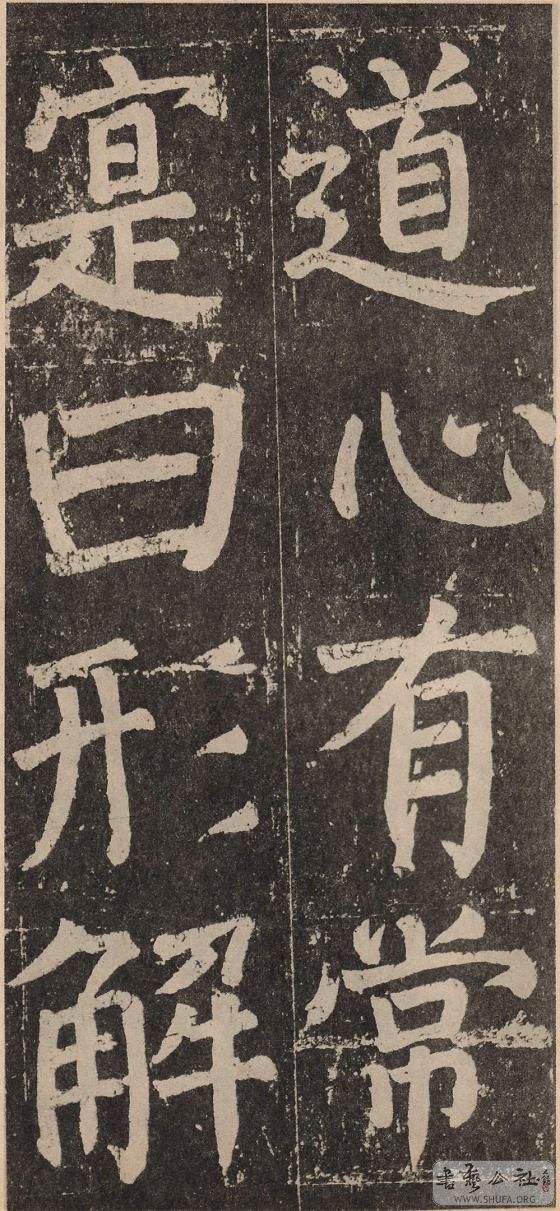 道心有常
寔曰形解
書藝公社
WWW.SHUFA.ORG